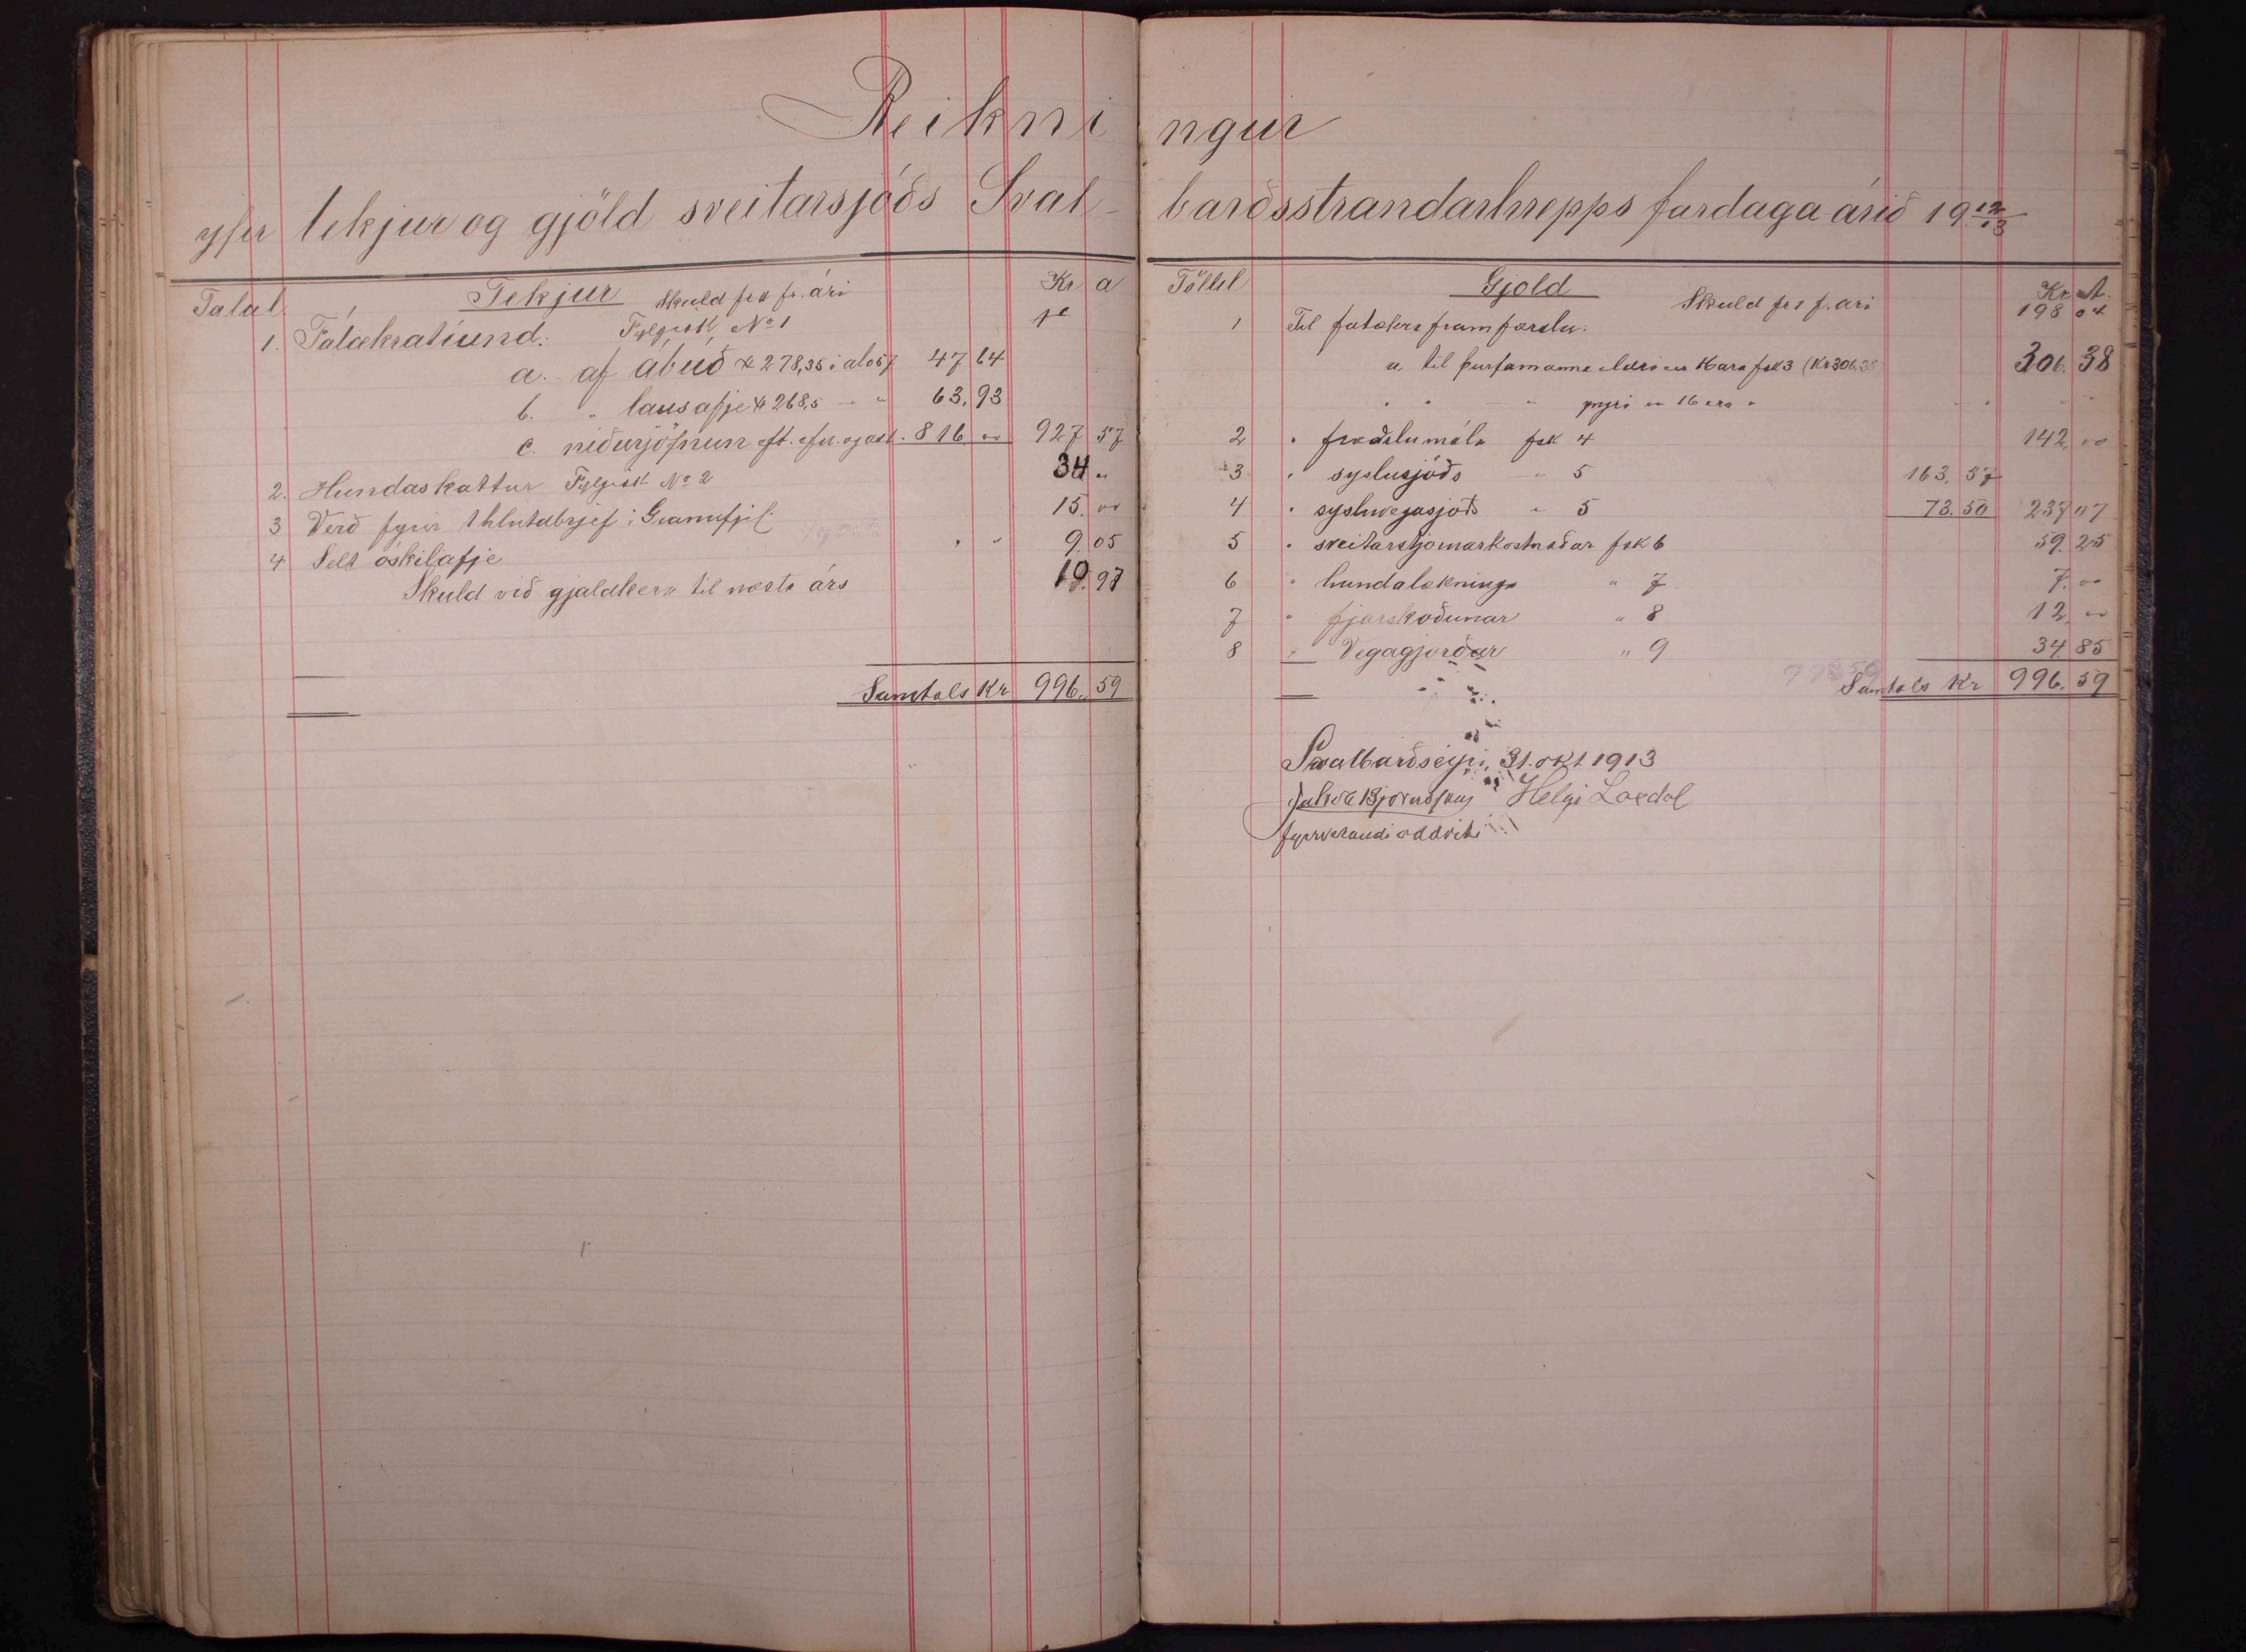 Reikningur
yfir tekjur og gjöld sveitarsjóðs Svalbarðsstrandarhrepps fardaga árið 19 12/13
Tölul. Tekjur Skuld frá fr. ári Kr a
1. Fátækratíund: Fylgiskl No 1
a. af ábúð 278,35 i al 057 47 64
b. " lausafje 268,5 - " 63,93
c. niðurjöfnun eft. efn. og ást. 816 00 927 57
2. Hundaskattur Fylgiskl No 2 34 "
3 Verð fyrir 1 hlutabrjef i Gránufjel 15. 00
4 Selt óskilafje " " 9. 05
Skuld við gjaldkera til næsta árs 10. 97
Samtals Kr 996. 59
Töllul Gjöld Skuld frá f. ári Kr A.
198 04
1 Til fátækraframfærslu:
a til þurfamanna eldri en 16 ára fsk 3 (Kr 306.38 306. 38
" " " yngri en 16 ára " " " "
2 " fræðslumála fsk 4 142, 00
3 " syslusjóðs " 5 163, 57
4 " sysluvegasjóðs " 5 73. 50 237 07
5 " sveitarstjórnarkostnaðar fsk 6 59. 25
6 " hundalækninga " 7 7. 00
7 " fjárskoðunar " 8 12, 00
8 " Vegagjörðar " 9 34 85
Samtals Kr 996. 59
Svalbarðseyri, 31. okt 1913
Helgi Laxdal
fyrrverandi oddviti